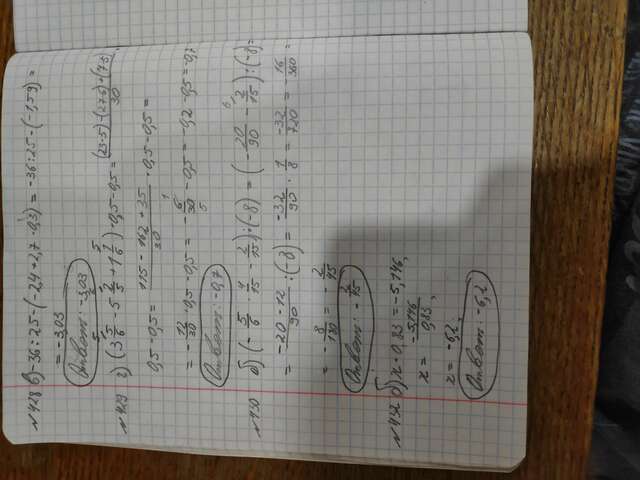 №428 в) -36:25-(-2,4+2,7·0,3) = -36:25-(-1,59) =
= -3,03
Ответ: -3,03
№429 г) (3 5/6 - 5 2/5 + 1 1/6)·0,5-0,5 = (23·5)-(27·6)+(7·5)/30 ·
0,5-0,5 = 115-162+35/30 · 0,5-0,5 =
= -12/30 · 0,5-0,5 = -6/30 - 0,5 = -0,2-0,5 = -0,7
Ответ: -0,7
№430 б) (-5/6 · 4/15 - 2/15):(-8) = (-20/90 - 2/15):(-8) =
= -20-12/90 : (8) = -32/90 · 1/8 = -32/720 = -16/360 =
= -8/180 = -2/15
Ответ: -2/15
№432 б) x·0,83 = -5,146,
x = -5,146/0,83,
x = -6,2,
Ответ: -6,2